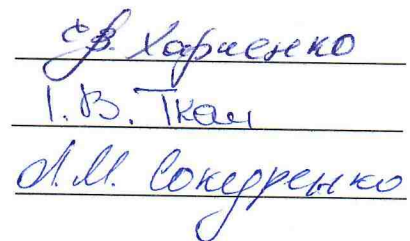 Є.В. Харченко
І.В. Ткач
Л.М. Сокуренко